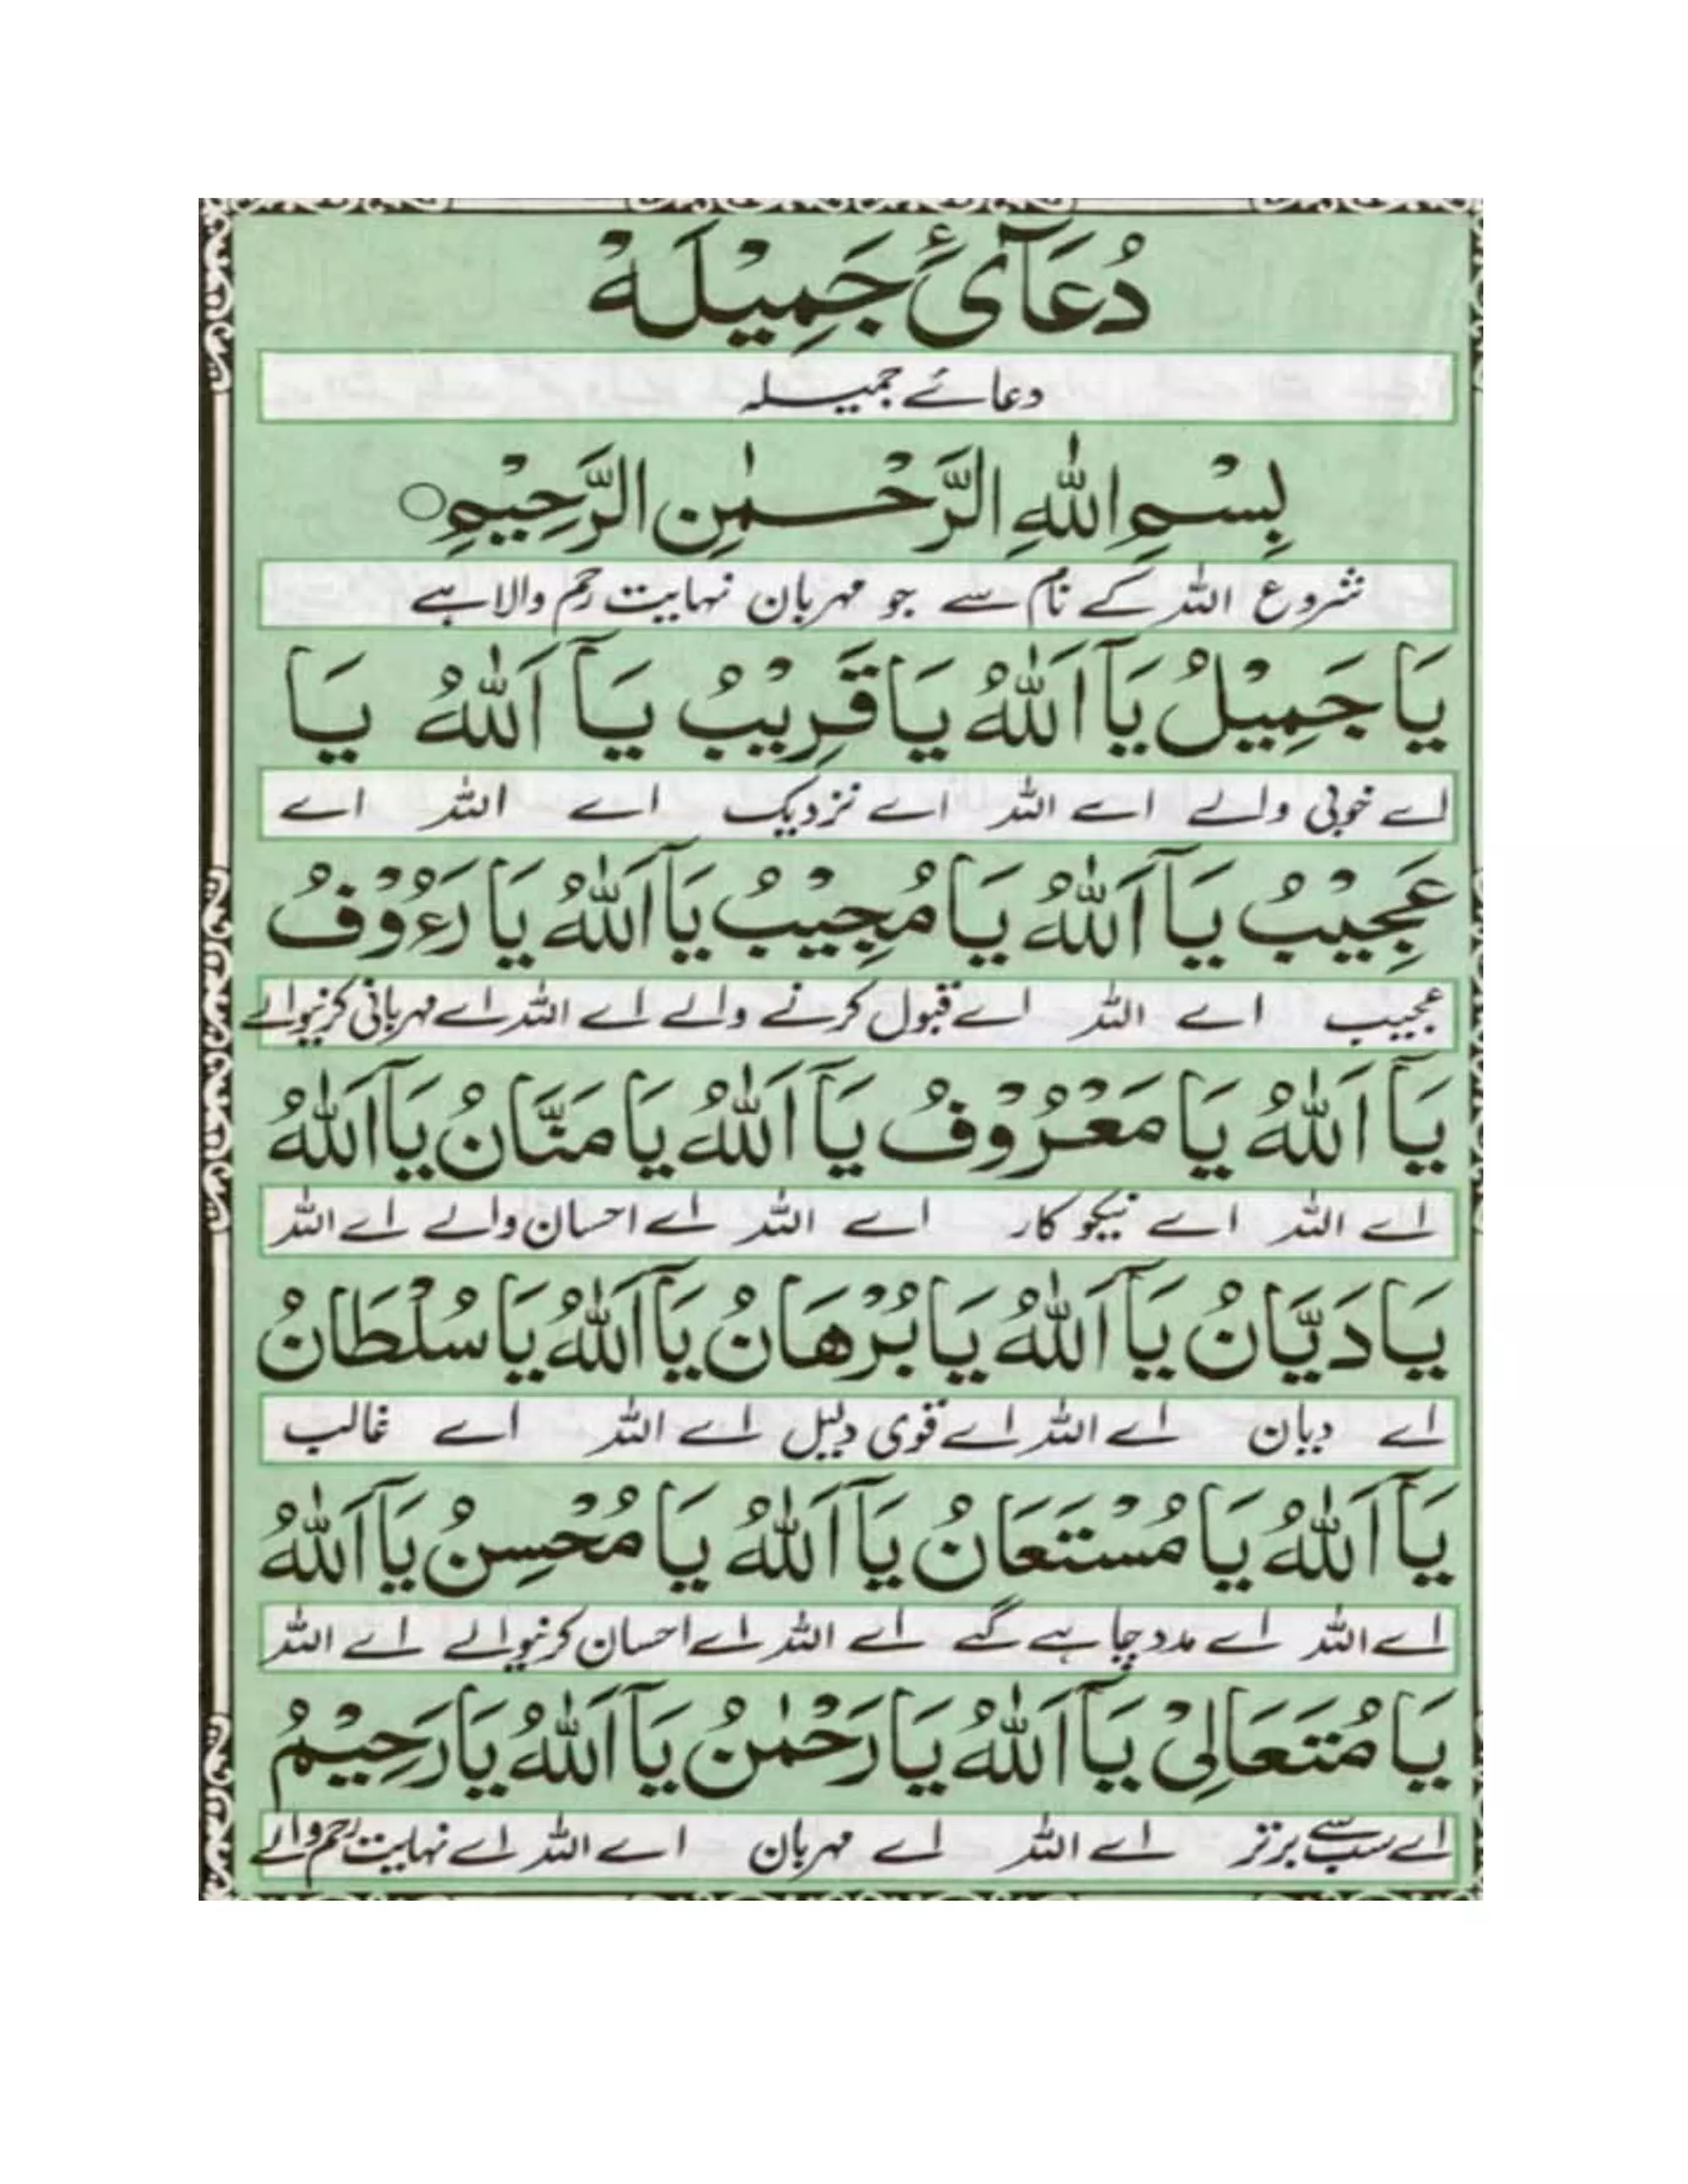 دُعَآئِ جَمِيْلَهْ
دعائے جمیلہ
بِسْمِ اللّٰهِ الرَّحْمٰنِ الرَّحِيْمِ○
شروع اللہ کے نام سے جو مہربان نہایت رحم والا ہے
يَا جَمِيْلُ يَآ اَللّٰهُ يَا قَرِيْبُ يَآ اَللّٰهُ يَا
اے خوبی والے اے اللہ اے نزدیک اے اللہ اے
عَجِيْبُ يَآ اَللّٰهُ يَا مُجِيْبُ يَآ اَللّٰهُ يَا رَءُوْفُ
عجیب اے اللہ اے قبول کرنے والے اے اللہ اے مہربانی کرنیوالے
يَآ اَللّٰهُ يَا مَعْرُوْفُ يَآ اَللّٰهُ يَا مَنَّانُ يَآ اَللّٰهُ
اے اللہ اے نیکو کار اے اللہ اے احسان والے اے اللہ
يَا دَيَّانُ يَآ اَللّٰهُ يَا بُرْهَانُ يَآ اَللّٰهُ يَا سُلْطَانُ
اے دیان اے اللہ اے قوی دلیل اے اللہ اے غالب
يَآ اَللّٰهُ يَا مُسْتَعَانُ يَآ اَللّٰهُ يَا مُحْسِنُ يَآ اَللّٰهُ
اے اللہ اے مدد چاہے گے اے اللہ اے احسان کرنیوالے اے اللہ
يَا مُتَعَالِیْ يَآ اَللّٰهُ يَا رَحْمٰنُ يَآ اَللّٰهُ يَا رَحِيْمُ
اے سب سے برتر اے اللہ اے مہربان اے اللہ اے نہایت رحم والے